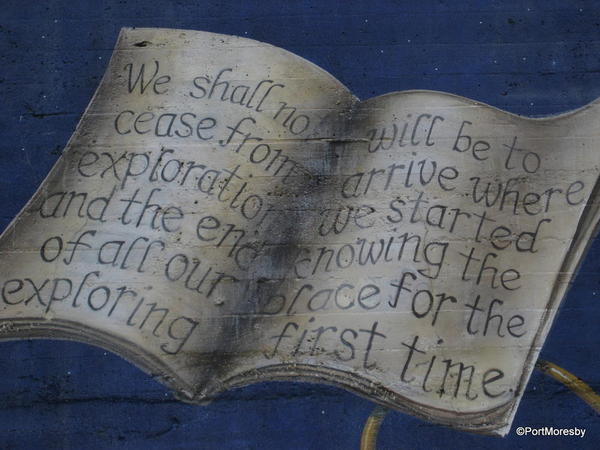 We shall no
cease from
exploration
and the end
of all our
exploring
will be to
arrive where
we started
knowing the
place for the
first time.
©PortMoresby